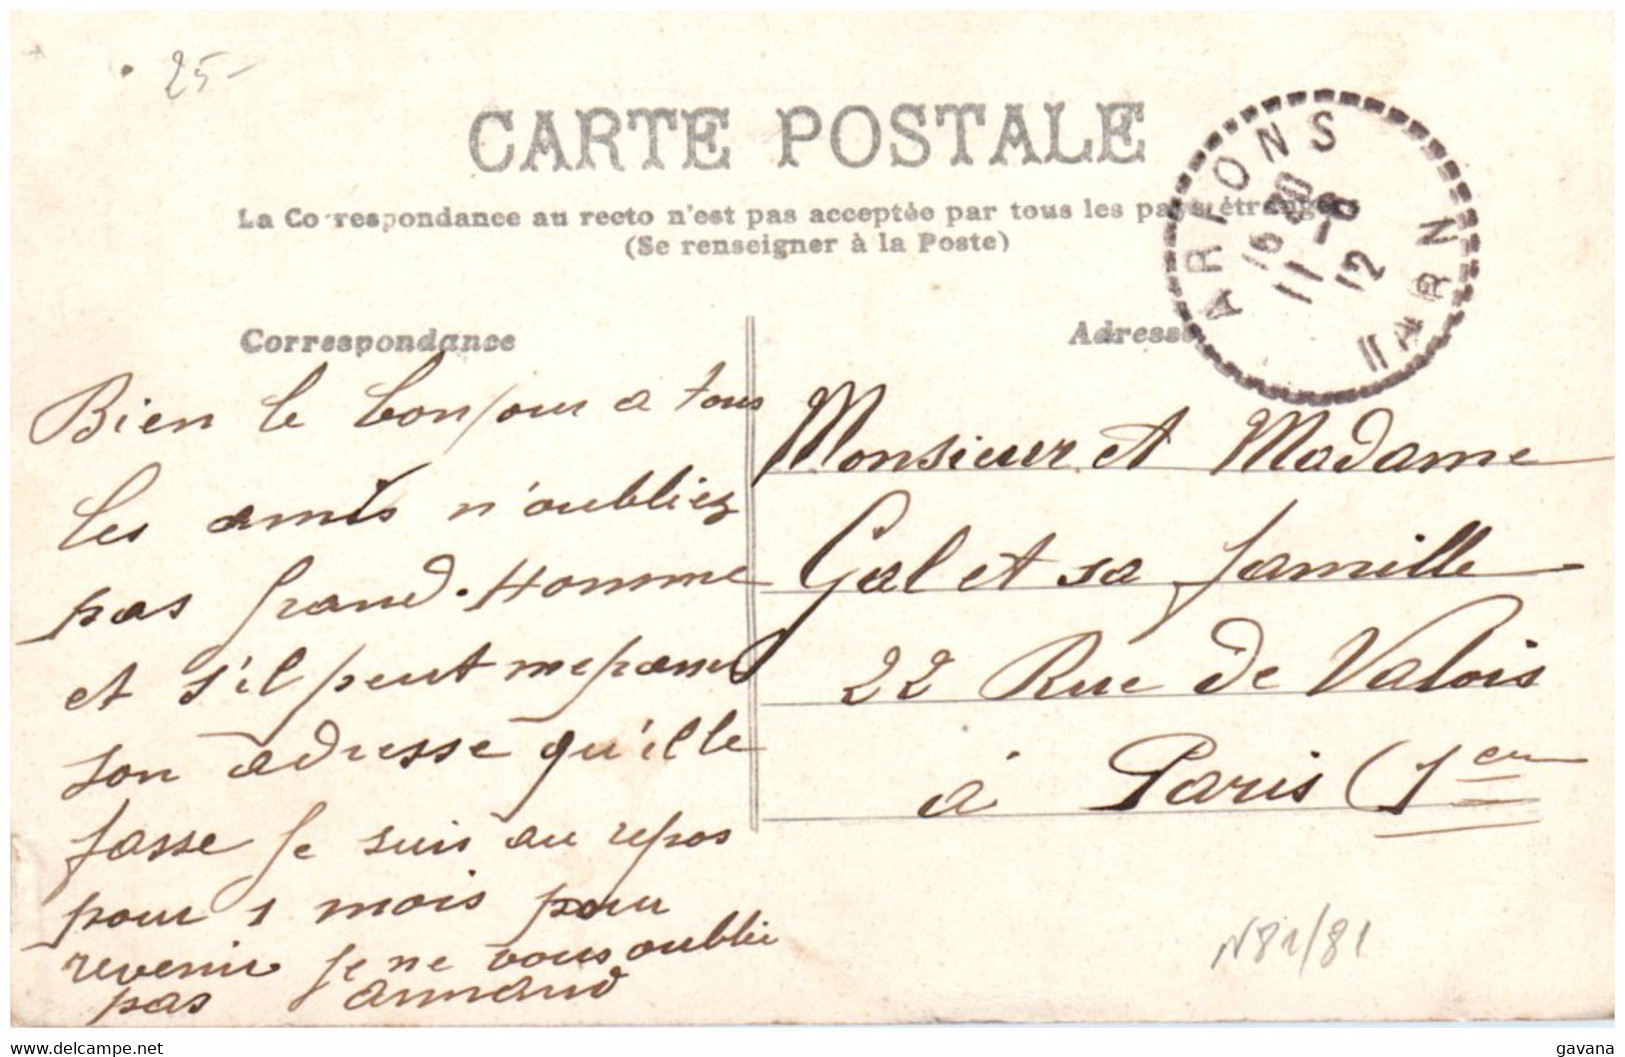 25-
CARTE POSTALE
La Correspondance au recto n'est pas acceptée par tous les pays étrangers
(Se renseigner à la Poste)
ARFONS
16 30
11-8
12
TARN
Correspondance
Adresse
Bien le bonjour a tous
les amis n'oubliez
pas Grand-Homme
et s'il peut me passer
son adresse qu'il le
fasse je suis au repos
pour 1 mois pour
revenir je ne vous oublie
pas Armand
Monsieur et Madame
Gal et sa famille
22 Rue de Valois
à Paris (1er
N81/81
delcampe.net
gavana